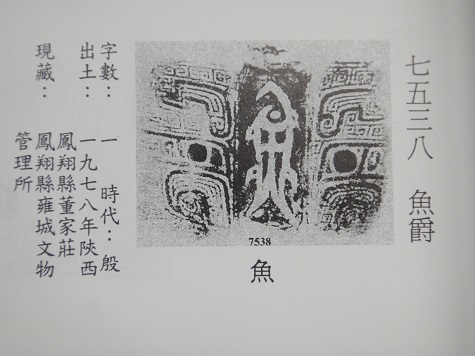 七五三八 魚爵
7538
魚
字數：一 時代：殷
出土：一九七八年陝西
鳳翔縣董家莊
現藏：鳳翔縣雍城文物
管理所